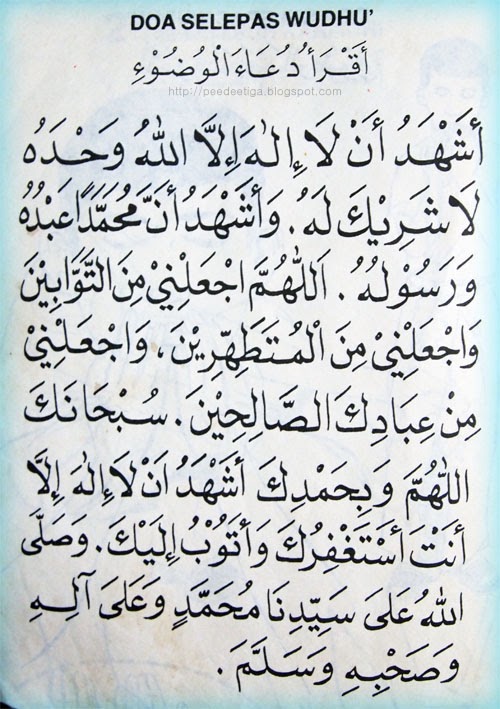 DOA SELEPAS WUDHU'
أَقْرَأُ دُعَاءَ الْوُضُوْءِ
http://peedeetiga.blogspot.com
أَشْهَدُ أَنْ لَا إِلٰهَ إِلَّا اللهُ وَحْدَهُ
لَا شَرِيْكَ لَهُ. وَأَشْهَدُ أَنَّ مُحَمَّدًا عَبْدُهُ
وَرَسُوْلُهُ. اَللّٰهُمَّ اجْعَلْنِيْ مِنَ التَّوَّابِيْنَ
وَاجْعَلْنِيْ مِنَ الْمُتَطَهِّرِيْنَ، وَاجْعَلْنِيْ
مِنْ عِبَادِكَ الصَّالِحِيْنَ. سُبْحَانَكَ
اللّٰهُمَّ وَبِحَمْدِكَ أَشْهَدُ اَنْ لَا إِلٰهَ إِلَّا
أَنْتَ أَسْتَغْفِرُكَ وَأَتُوْبُ إِلَيْكَ. وَصَلَّى
اللهُ عَلَى سَيِّدِنَا مُحَمَّدٍ وَعَلَى آلِهِ
وَصَحْبِهِ وَسَلَّمَ.